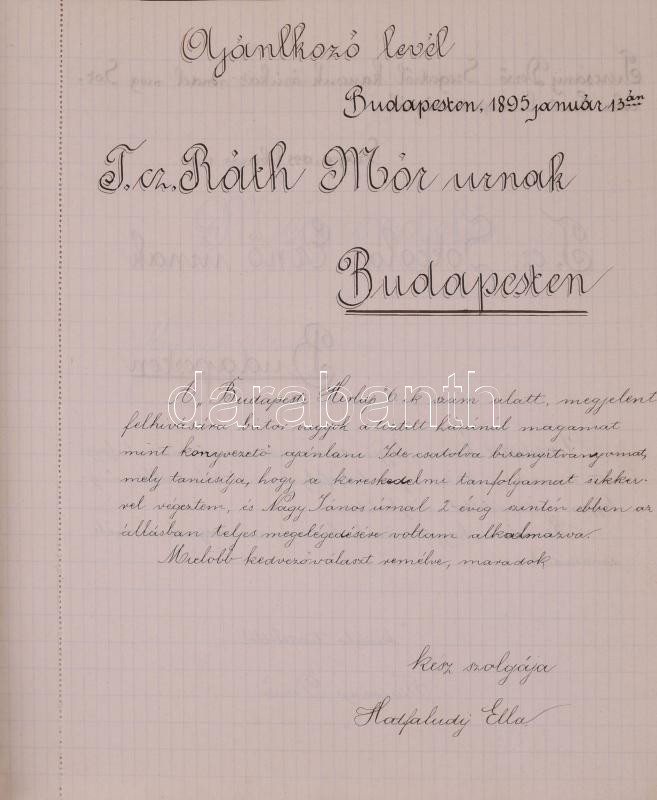 Ajánlkozó levél
Budapesten, 1895 január 13án
T. cz. Ráth Mór urnak
Budapesten
A „Budapesti Hirlap" 6.-k szám alatt, megjelent
felhivására bátor vagyok a tisztelt háznál magamat
mint könyvezető ajánlani Ide csatolva bizonyítványomat,
mely tanúsítja, hogy a kereskedelmi tanfolyamat sikker-
rel végeztem, és Nagy János úrnál 2 évig szintén ebben az
állásban teljes megelégedésére voltam alkalmazva.
Mielőbb kedvező választ remélve, maradok
kész szolgája
Hatfaludy Ella
darabanth